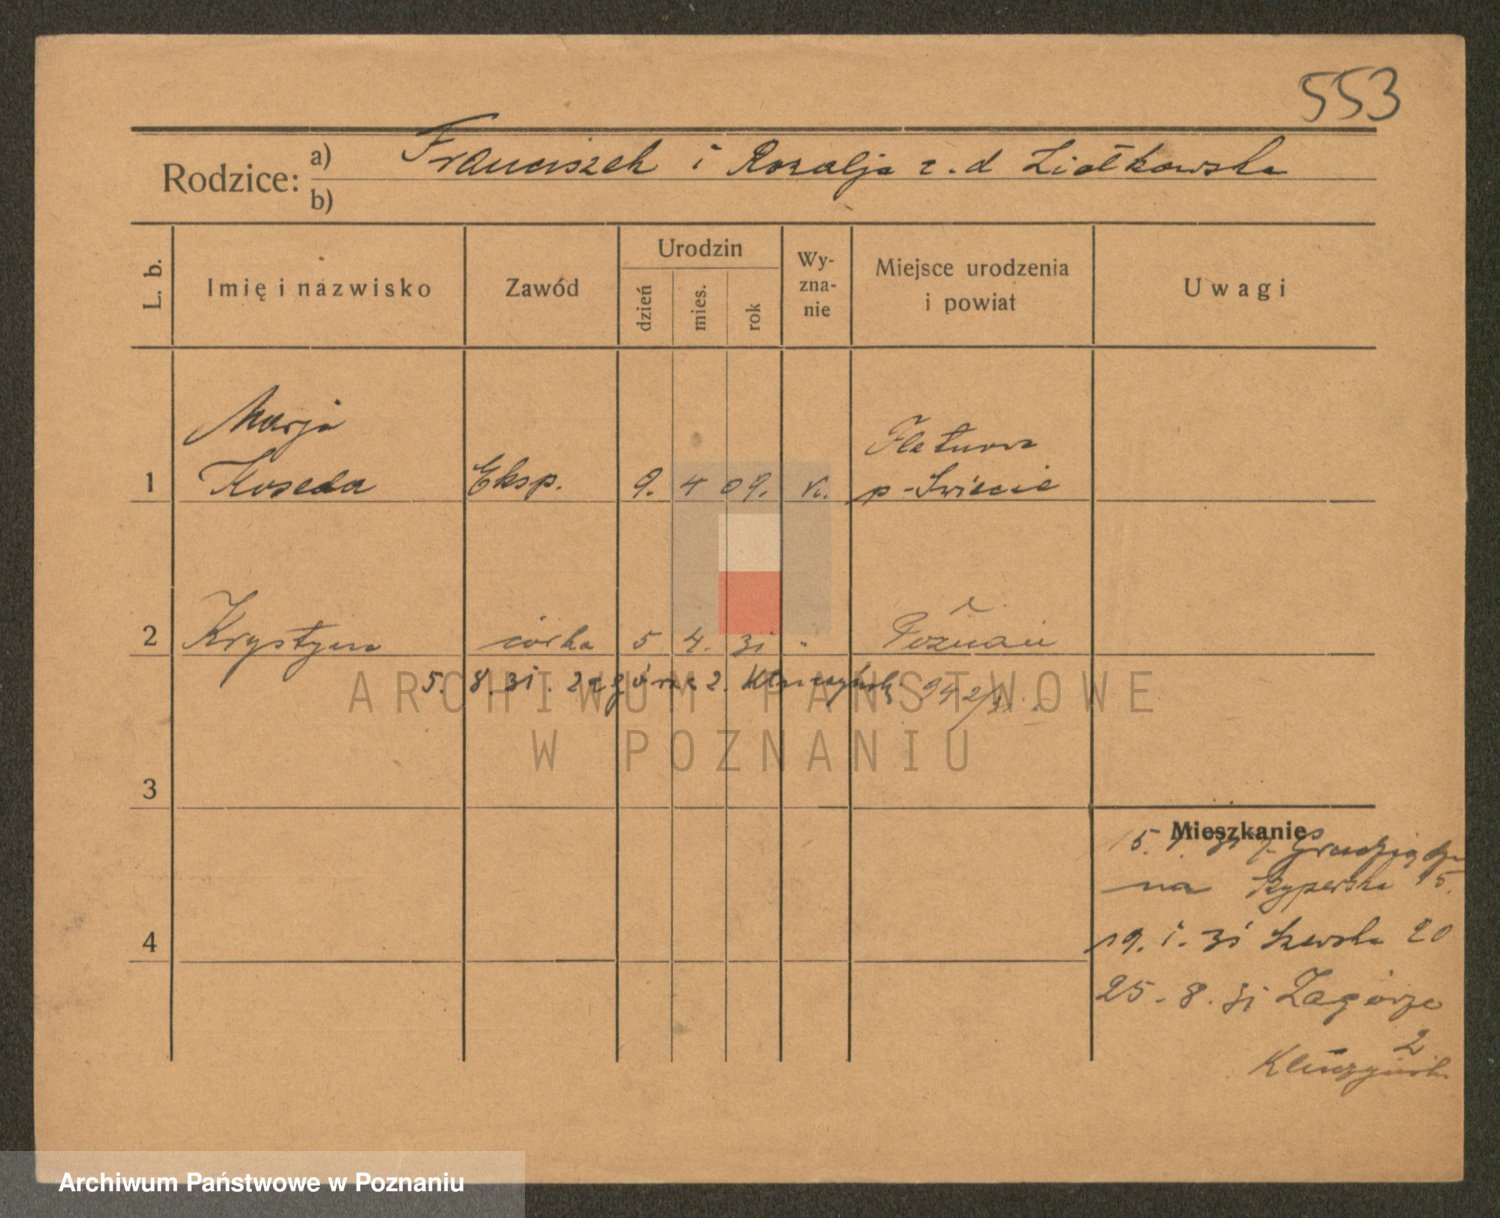 553
Rodzice: a) Franciszek i Rozalja z. d Ziołkowska
b)
L. b.
Imię i nazwisko
Zawód
Urodzin
dzień
mies.
rok
Wy-
zna-
nie
Miejsce urodzenia
i powiat
Uwagi
Marja
1 Koseda Eksp. 9. 4 09. k.
p-Świecie
2 Krystyna córka 5 4. 31 "
Poznań
5. 8. 31. Zagórze 2. Kluczyńsk 942/31.
3
4
Mieszkanie
15. 31 z Grudziądza
na Szyperska 15.
19. 1. 31 Szewska 20
25. 8. 31 Zagórze
2
Kluczyńsk
ARCHIWUM PAŃSTWOWE
W POZNANIU
Archiwum Państwowe w Poznaniu